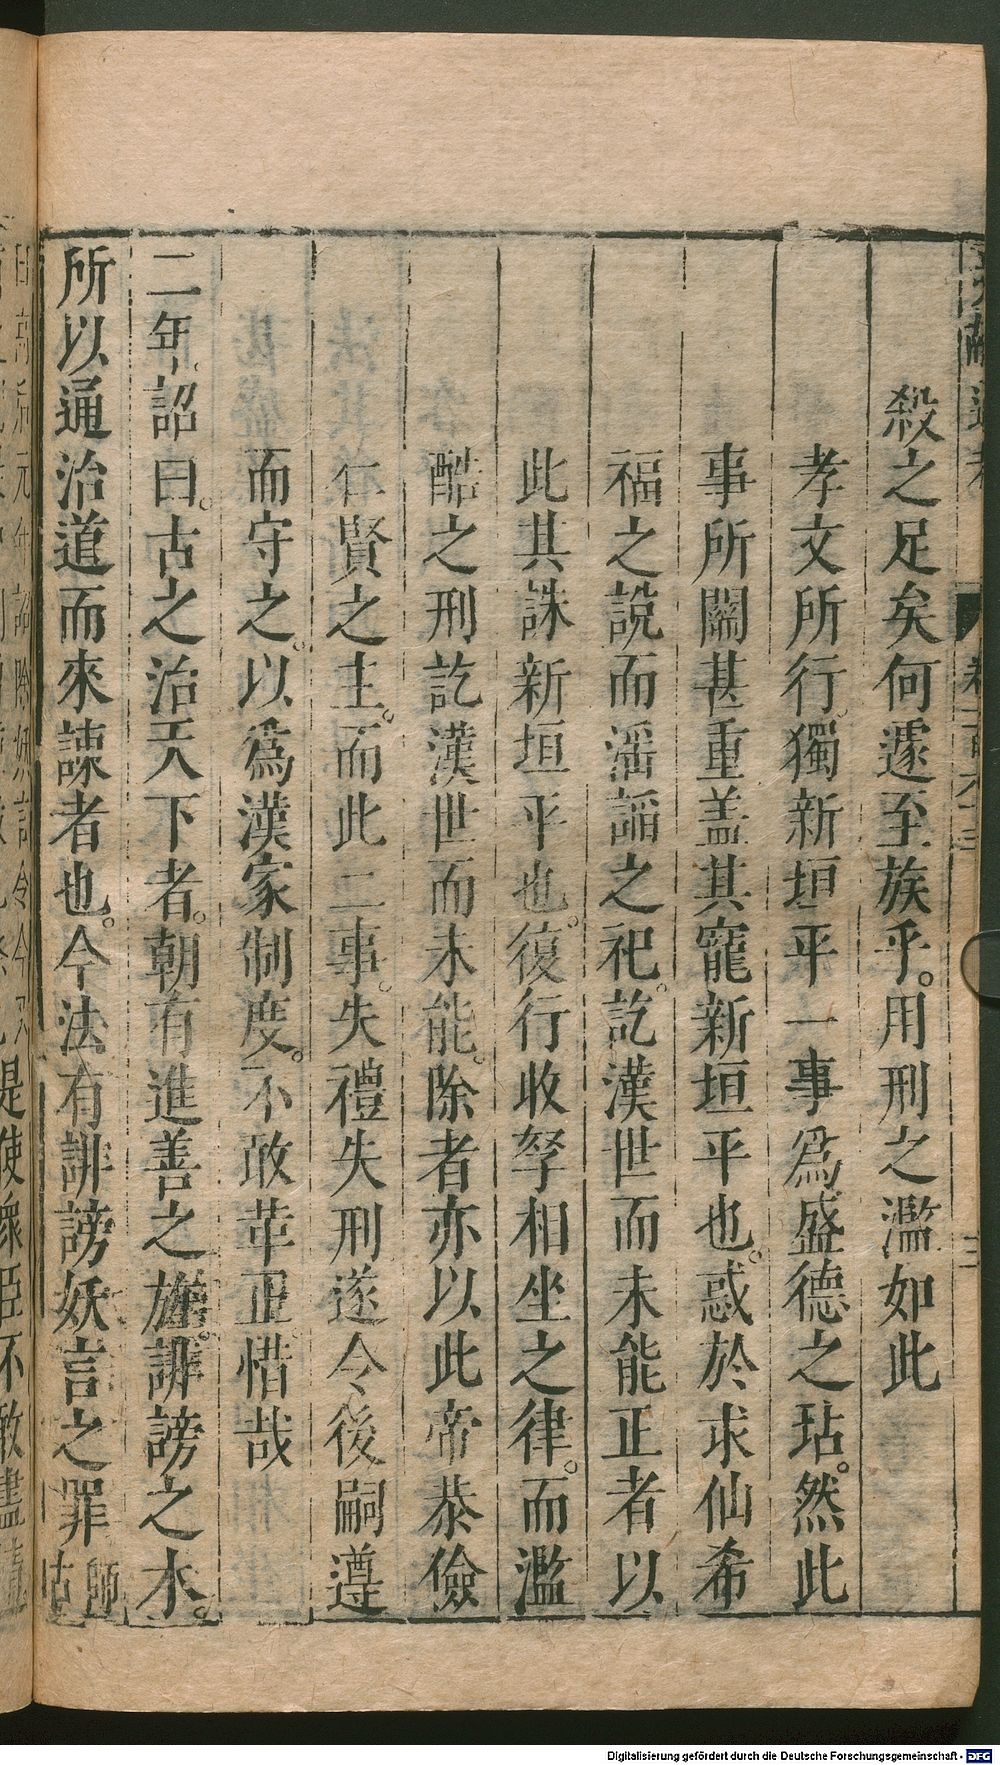 殺之足矣何遽至族乎。用刑之濫如此
孝文所行獨新垣平一事爲盛德之玷。然此
事所關甚重盖其寵新垣平也。惑於求仙希
福之說而滛謟之祀。訖漢世而未能正者以
此其誅新垣平也。復行收孥相坐之律。而濫
酷之刑訖漢世而未能。除者亦以此帝恭儉
仁賢之主。而此二事。失禮失刑遂令後嗣遵
而守之。以爲漢家制度。不敢革正惜哉
二年。詔曰。古之治天下者。朝有進善之旌。誹謗之木。
所以通治道而來諫者也。今法有誹謗妖言之罪師古
是使衆臣不敢盡情
Digitalisierung gefördert durch die Deutsche Forschungsgemeinschaft - DFG